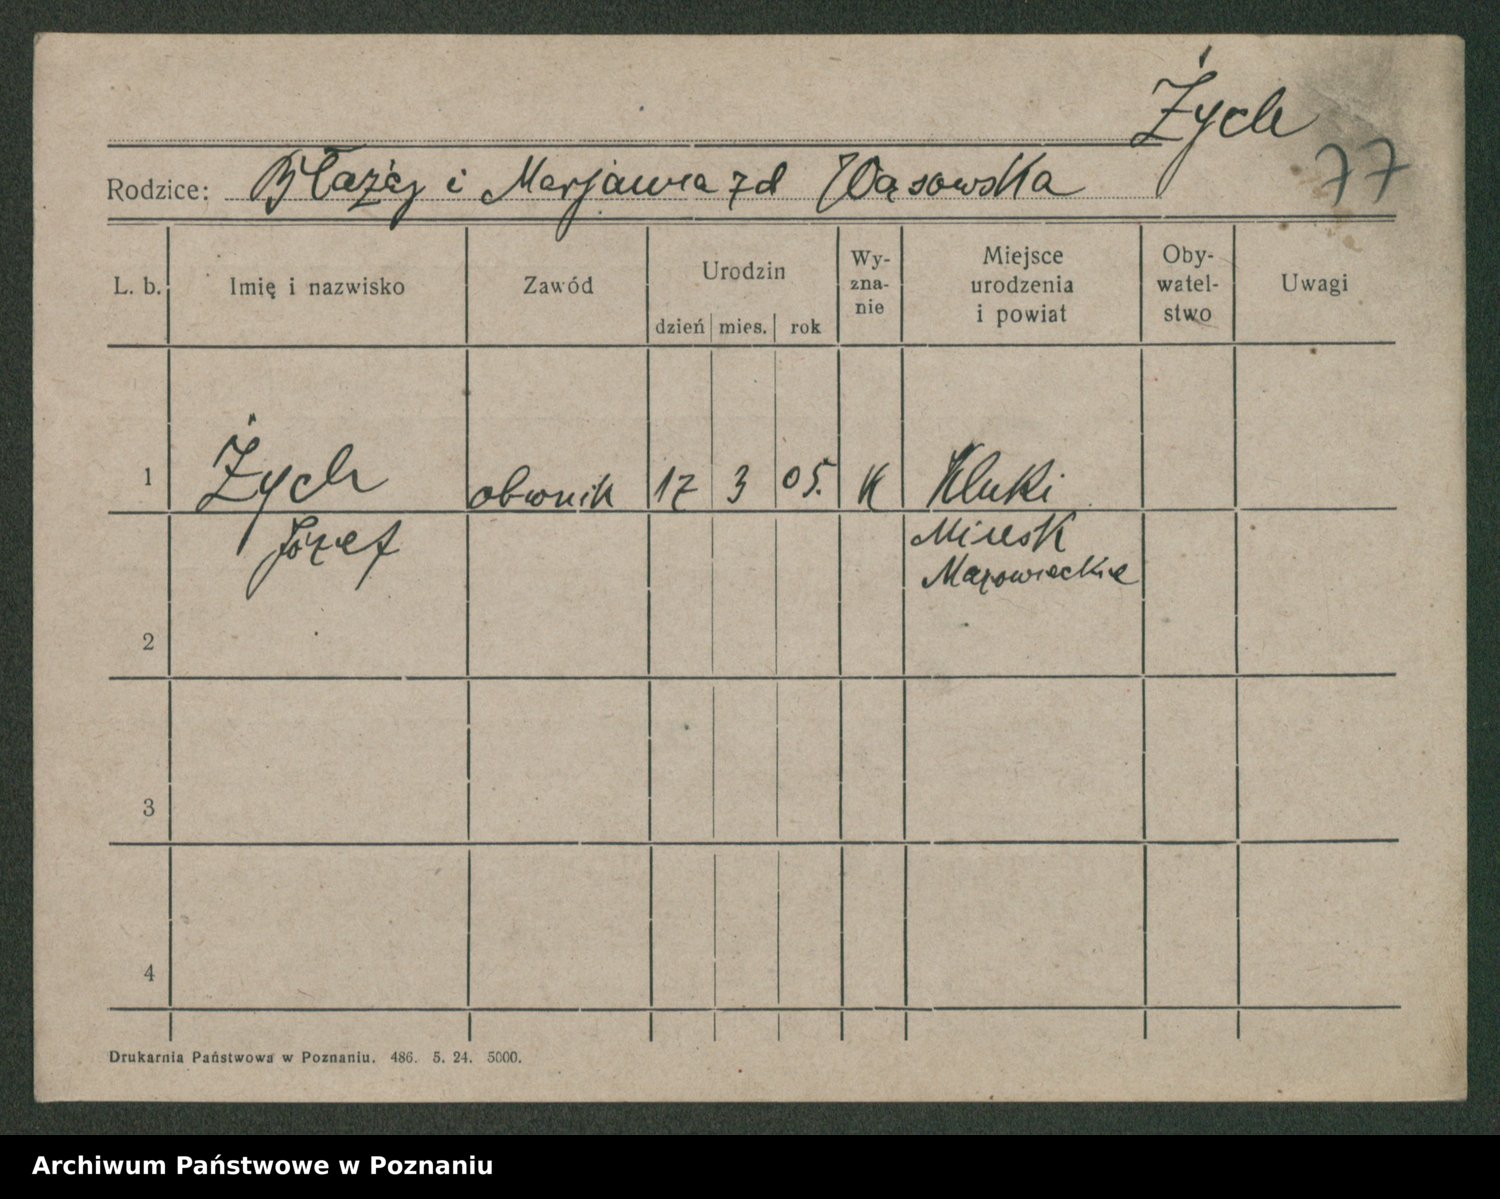 Żych
77
Rodzice: Błażej i Marjanna zd Wąsowska
L. b. Imię i nazwisko Zawód Urodzin dzień mies. rok Wy-zna-nie Miejsce urodzenia i powiat Oby-watel-stwo Uwagi
1 Żych obwnik 17 3 05. K Kluki
Józef Mińsk
Mazowieckie
2
3
4
Drukarnia Państwowa w Poznaniu. 486. 5. 24. 5000.
Archiwum Państwowe w Poznaniu